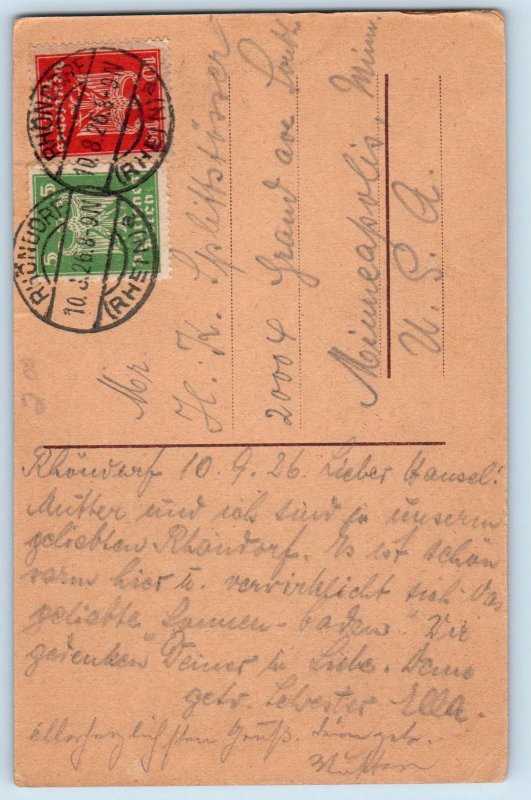 RHÖNDORF
10.8.26.8-9N
(RHEIN) a
10
RHÖNDORF
10.8.26.8-9N
(RHEIN) a
5
5
Mr.
H. K. Splittstösser
2000 4 Grand ave South
Minneapolis, Minn.
U. S. A.
Rhöndorf 10. 9. 26. Lieber Hansel!
Mutter und ich sind in unserm
geliebten Rhöndorf. Es ist schön
warm hier u. verwirklicht sich das
geliebte Sonnen-baden." Wir
gedenken Deiner in Liebe. Deine
getr. Schwester Ella.
allerherzlichsten Gruß.
Mutter